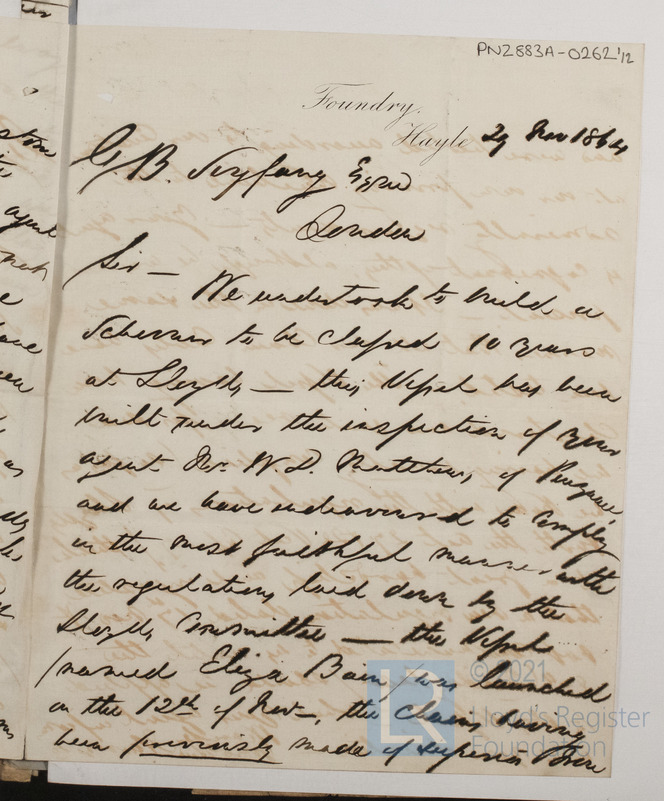 PN2883A-0262 1/2
Foundry,
Hayle 29 Nov 1864
G. B. Seyfang Esqre
London
Sir — We undertook to build a
Schooner to be classed 10 years
at Lloyds — this Vessel has been
built under the inspection of your
agent Mr. W. D. Matthews of Penzance
and we have endeavoured to comply
in the most faithful manner with
the regulations laid down by the
Lloyds Committee — the Vessel
(named Eliza Bain) was launched
on the 12th of Nov—, the Chains having
been previously made of superior Iron
© 2021
LR
Lloyd's Register
Foundation